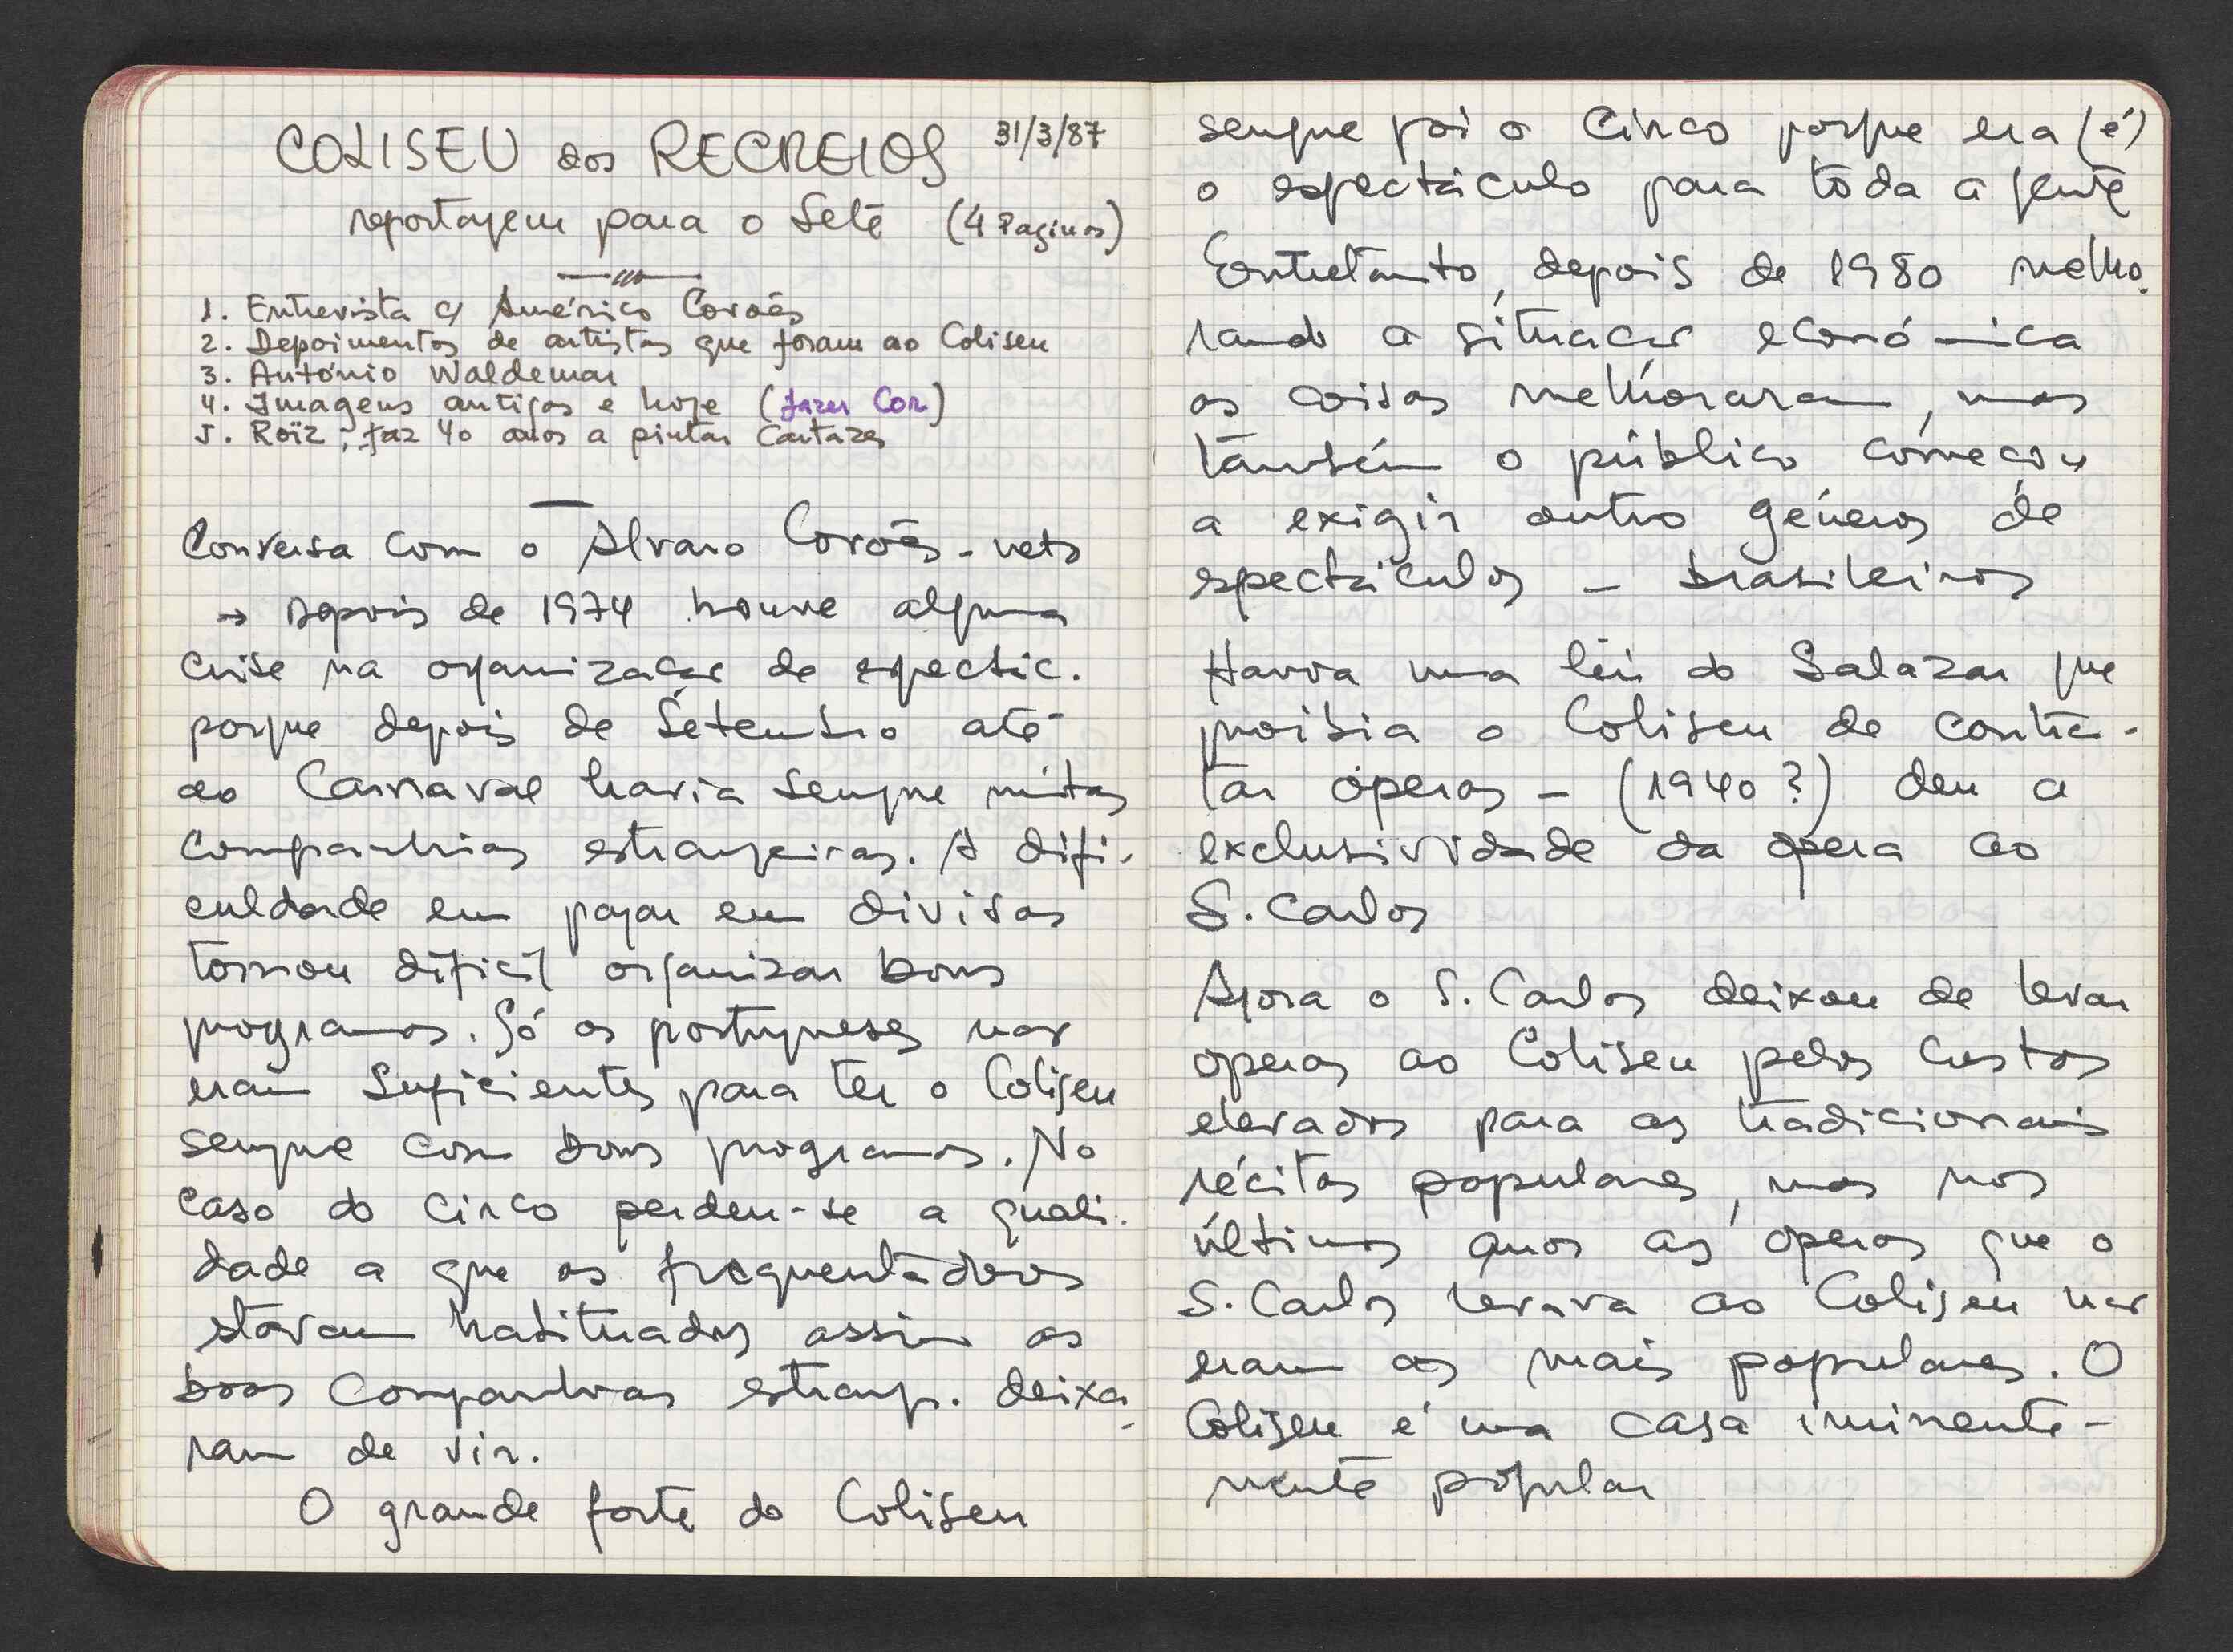 COLISEU dos RECREIOS 31/3/87
reportagem para o Sete (4 Paginas)
1. Entrevista c/ Américo Covões
2. Depoimentos de artistas que foram ao Coliseu
3. António Waldemar
4. Imagens antigas e hoje (fazer Cor)
5. Roïz; faz 40 anos a pintar Cartazes
Conversa com o Alvaro Covões - neto
→ Depois de 1974 houve alguma
crise na organização de espectác.
porque depois de Setembro até
ao Carnaval havia sempre muitas
companhias estrangeiras. A difi-
culdade em pagar em divisas
tornou difícil organizar bons
programas. Só os portugueses não
eram suficientes para ter o Coliseu
sempre com bons programas. No
caso do circo perdeu-se a quali-
dade a que os frequentadores
stavam habituados assim as
boas companhias estrang. deixa-
ram de vir.
O grande forte do Coliseu
sempre foi o Circo porque era (é)
o espectáculo para toda a gente
Entretanto, depois de 1980 melho-
rando a situação económica
as coisas melhoraram, mas
também o público começou
a exigir outro géneros de
espectáculos - brasileiros
Havia uma lei do Salazar que
proibia o Coliseu de contra-
tar óperas - (1940?) deu a
exclusividade da ópera ao
S. Carlos
Agora o S. Carlos deixou de levar
operas ao Coliseu pelos custos
elevados para as tradicionais
récitas populares, mas nos
últimos anos as óperas que o
S. Carlos levava ao Coliseu não
eram as mais populares. O
Coliseu é uma casa iminente-
mente popular